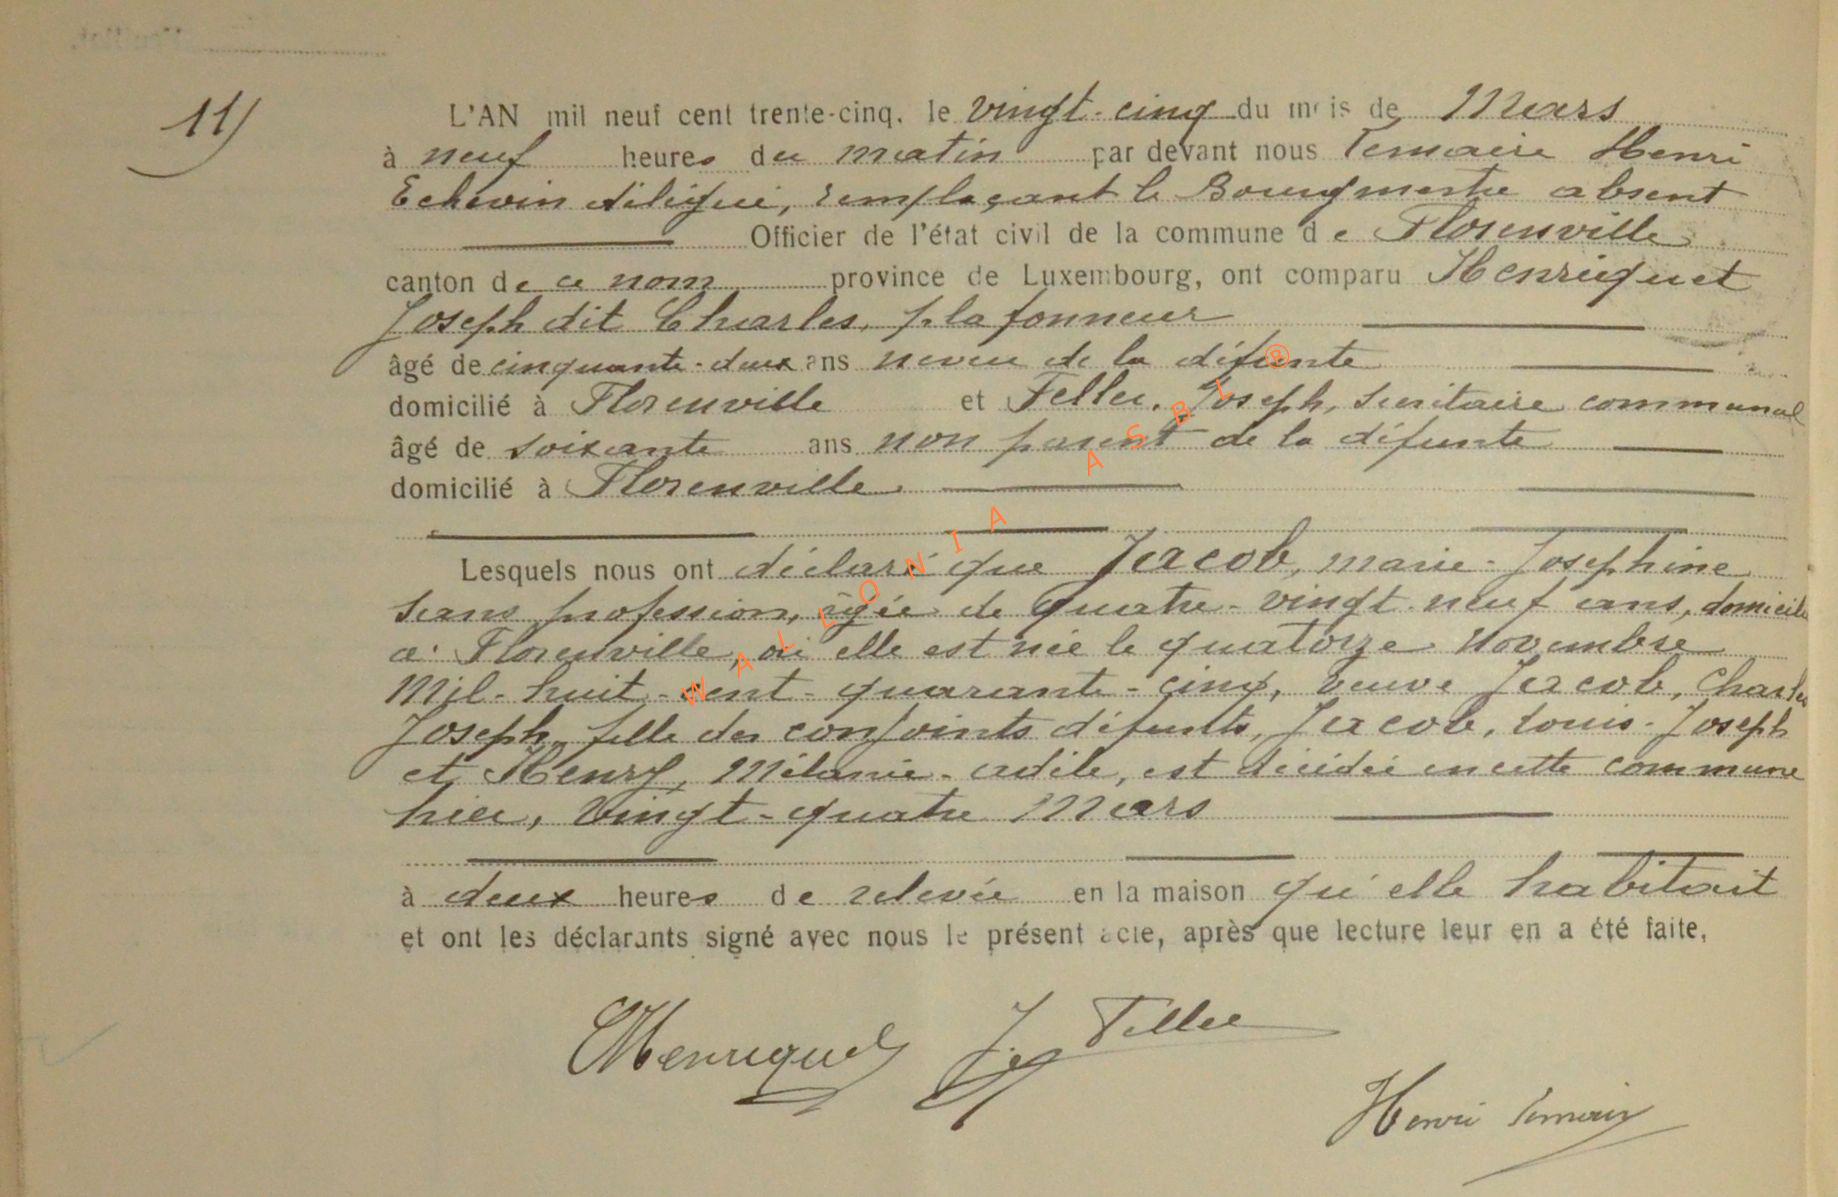 11)
L'AN mil neuf cent trente-cinq, le vingt-cinq du mois de Mars
à neuf heures du matin par devant nous Lemaire Henri
Echevin délégué, remplaçant le Bourgmestre absent
Officier de l'état civil de la commune de Florenville
canton de ce nom province de Luxembourg, ont comparu Henriquet
Joseph dit Charles, plafonneur
âgé de cinquante-deux ans neveu de la défunte
domicilié à Florenville et Feller, Joseph, secrétaire communal
âgé de soixante ans non parent de la défunte
domicilié à Florenville
Lesquels nous ont déclaré que Jacob, marie-Josephine
sans profession, âgée de quatre-vingt-neuf ans, domiciliée
à Florenville, où elle est née le quatorze Novembre
Mil-huit-cent-quarante-cinq, veuve Jacob, Charles
Joseph, fille des conjoints défunts, Jacob, Louis-Joseph
et Henry, Mélanie-adèle, est décédée en cette commune
hier, vingt-quatre Mars
à deux heures de relevée en la maison qu'elle habitait
et ont les déclarants signé avec nous le présent acte, après que lecture leur en a été faite,
CHenriquet J. Feller
Henri Lemaire
WALLONIA ASBL ®